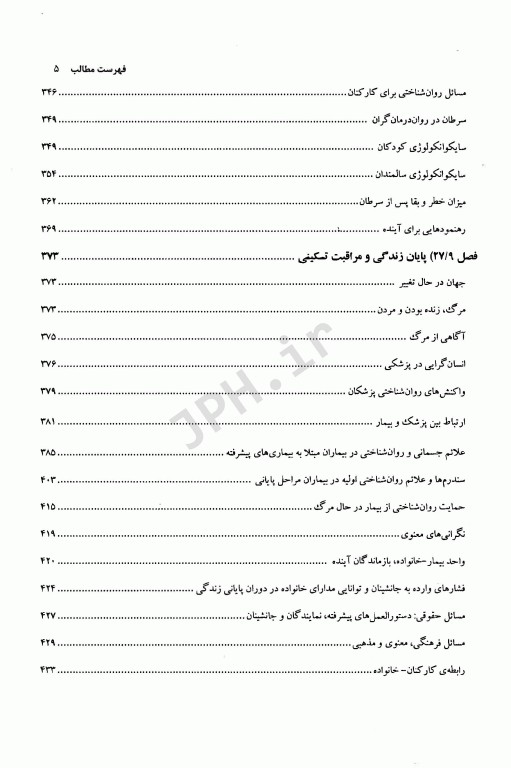 فهرست مطالب ۵
مسائل روان‌شناختی برای کارکنان ........ ۳۴۶
سرطان در روان‌درمان‌گران ........ ۳۴۹
سایکوانکولوژی کودکان ........ ۳۴۹
سایکوانکولوژی سالمندان ........ ۳۵۴
میزان خطر و بقا پس از سرطان ........ ۳۶۲
رهنمودهایی برای آینده ........ ۳۶۹
فصل ۲۷/۹) پایان زندگی و مراقبت تسکینی ........ ۳۷۳
جهان در حال تغییر ........ ۳۷۳
مرگ، زنده بودن و مردن ........ ۳۷۳
آگاهی از مرگ ........ ۳۷۵
انسان‌گرایی در پزشکی ........ ۳۷۶
واکنش‌های روان‌شناختی پزشکان ........ ۳۷۹
ارتباط بین پزشک و بیمار ........ ۳۸۱
علائم جسمانی و روان‌شناختی در بیماران مبتلا به بیماری‌های پیشرفته ........ ۳۸۵
سندرم‌ها و علائم روان‌شناختی اولیه در بیماران مراحل پایانی ........ ۴۰۳
حمایت روان‌شناختی از بیمار در حال مرگ ........ ۴۱۵
نگرانی‌های معنوی ........ ۴۱۹
واحد بیمار-خانواده، بازماندگان آینده ........ ۴۲۰
فشارهای وارده به جانشینان و توانایی مدارای خانواده در دوران پایانی زندگی ........ ۴۲۴
مسائل حقوقی: دستورالعمل‌های پیشرفته، نمایندگان و جانشینان ........ ۴۲۷
مسائل فرهنگی، معنوی و مذهبی ........ ۴۲۹
رابطه‌ی کارکنان- خانواده ........ ۴۳۳
JPH.ir